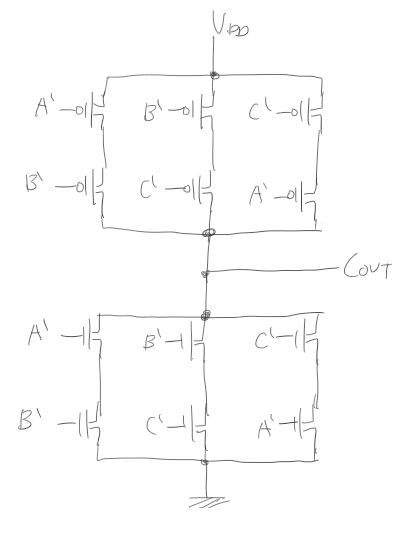 VDD
A' B' C'
B' C' A'
COUT
A' B' C'
B' C' A'